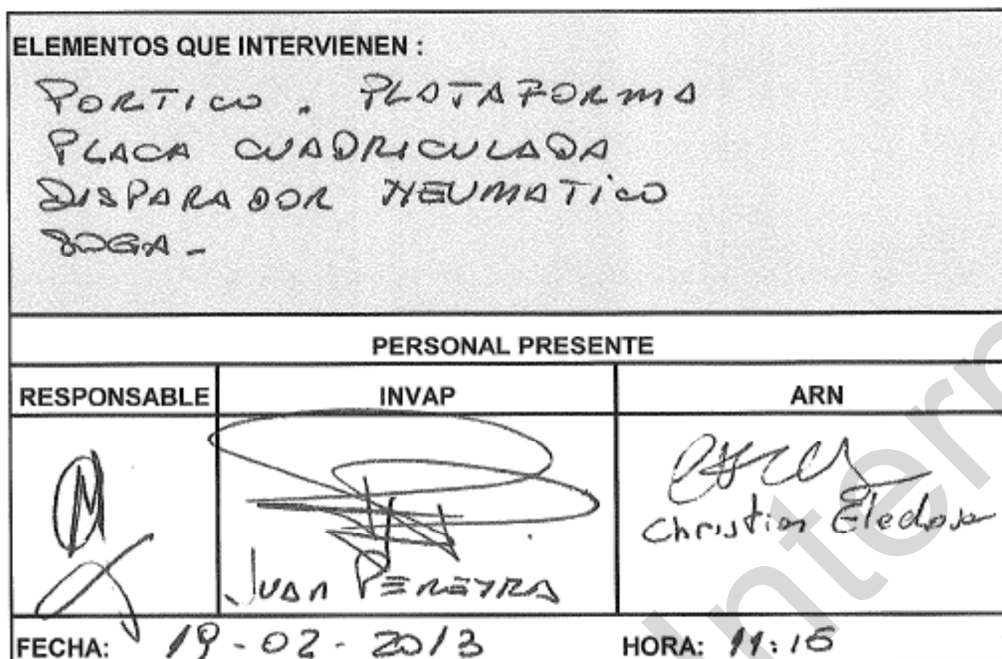 ELEMENTOS QUE INTERVIENEN :
PORTICO . PLATAFORMA
PLACA CUADRICULADA
DISPARADOR NEUMATICO
SOGA -
PERSONAL PRESENTE
RESPONSABLE INVAP ARN
JUAN PEREYRA
Christian
FECHA: 19-02-2013 HORA: 11:15
Intern